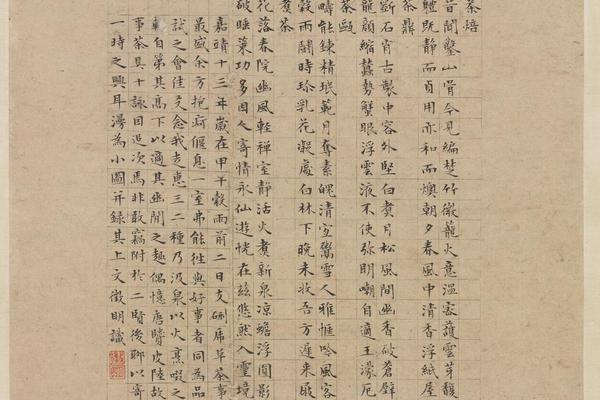 茶焙
昔聞鑿山骨今見編楚竹微籠火意溫密護雲芽馥
體既靜而貞用亦和而燠朝夕春風中清香浮紙屋
茶鼎
斵石肖古製中容外堅白煑月松風間幽香破蒼壁
龍顏縮蠶勢蟹眼浮雲液不使弥明嘲自適王濛厄
茶甌
疇能鍊精珉範月奪素魄清宜鬻雪人雅愜吟風客
穀雨鬬時珍乳花凝處白林下晚未收吾方遲來屐
煑茶
花落春院幽風輕禪室靜活火煑新泉涼蟾浮圓影
破睡策功多因人寄情永仙遊恍在茲悠然入靈境
嘉靖十三年歲在甲午穀雨前二日支硎虎阜茶事
最盛余方抱疾偃息一室弗能往與好事者同為品
試之會佳友念我走惠三二種乃汲泉以火烹啜之
輙自第其高下以適其幽閒之趣偶憶唐賢皮陸故
事茶具十詠因追次焉非敢竊附於二賢後聊以寄
一時之興耳漫為小圖并錄其上文徵明識